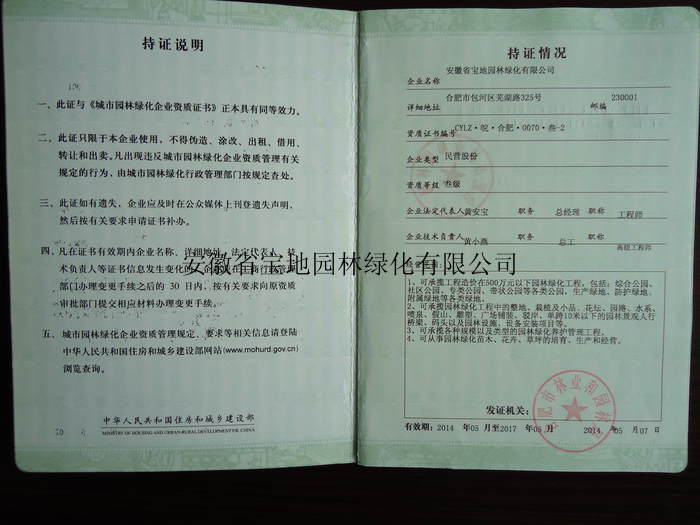 持证说明
一、此证与《城市园林绿化企业资质证书》正本具有同等效力。
二、此证只限于本企业使用，不得伪造、涂改、出租、借用、
转让和出卖。凡出现违反城市园林绿化企业资质管理有关
规定的行为，由城市园林绿化行政管理部门按规定查处。
三、此证如有遗失，企业应及时在公众媒体上刊登遗失声明，
然后按有关要求申请证书补办。
四、凡在证书有效期内企业名称、详细地址、法定代表人、技
术负责人等证书信息发生变化的，企业应在
部门办理变更手续之后的 30 日内，按有关要求向原资质
审批部门提交相应材料办理变更手续。
五、城市园林绿化企业资质管理规定、要求等相关信息请登陆
中华人民共和国住房和城乡建设部网站(www.mohurd.gov.cn)
浏览查询。
中华人民共和国住房和城乡建设部
MINISTRY OF HOUSING AND URBAN-RURAL DEVELOPMENT, CHINA
持证情况
企业名称 安徽省宝地园林绿化有限公司
详细地址 合肥市包河区芜湖路325号 邮编 230001
资质证书编号 CYLZ·皖·合肥·0070·叁-2
企业类型 民营股份
资质等级 叁级
企业法定代表人 黄安宝 职务 总经理 职称 工程师
企业技术负责人 黄小燕 职务 总工 职称 高级工程师
1、可承揽工程造价在500万元以下园林绿化工程，包括：综合公园、
社区公园、专类公园、带状公园等各类公园，生产绿地、防护绿地、
附属绿地等各类绿地。
2、可承揽园林绿化工程中的整地、栽植及小品、花坛、园路、水系、
喷泉、假山、雕塑、广场铺装、驳岸、单跨10米以下的园林景观人行
桥梁、码头以及园林设施、设备安装项目等。
3、可承揽各种规模以及类型的园林绿化养护管理工程。
4、可从事园林绿化苗木、花卉、草坪的培育、生产和经营。
发证机关：
合肥市林业和园林局
有效期：2014 年05 月至2017 年05 月 2014 年 05 月 07 日
安徽省宝地园林绿化有限公司